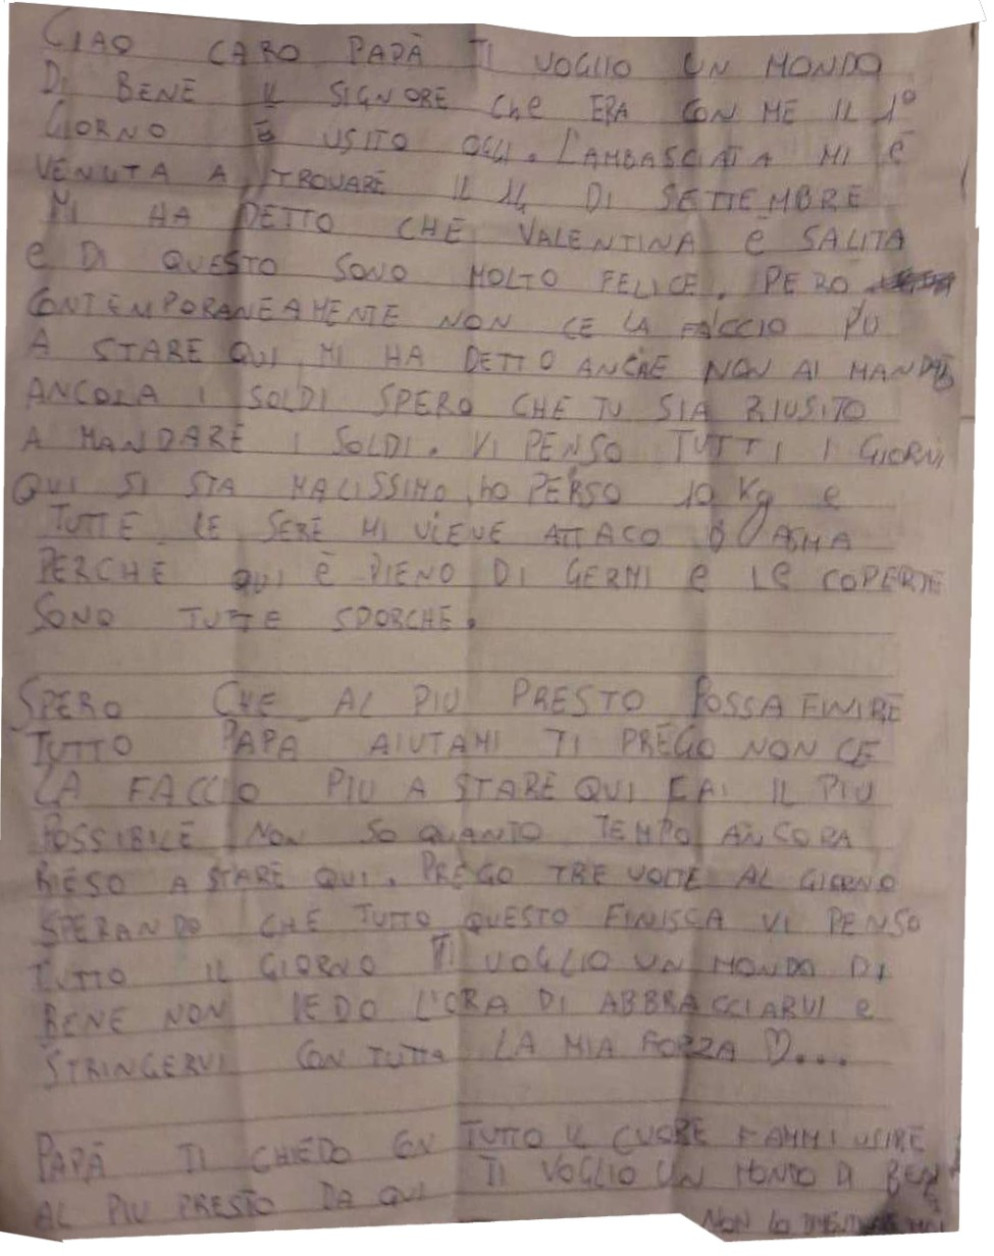 CIAO CARO PAPÀ TI VOGLIO UN MONDO
DI BENE IL SIGNORE CHe ERA CON ME IL 1°
GIORNO È USITO OGGI. L'AMBASCIATA MI È
VENUTA A TROVARE IL 14 DI SETTEMBRE
MI HA DETTO CHE VALENTINA È SALITA
e DI QUESTO SONO MOLTO FELICE. PERO
CONTEMPORANEAMENTE NON CE LA FACCIO PIU
A STARE QUI, MI HA DETTO ANCHE NON AI MANDATO
ANCORA I SOLDI SPERO CHE TU SIA RIUSITO
A MANDARE I SOLDI. VI PENSO TUTTI I GIORNI
QUI SI STA MALISSIMO, hO PERSO 10 Kg e
TUTTE LE SERE MI VIENE ATTACO D'ASMA
PERCHE QUI È PIENO DI GERMI e Le COPERTE
SONO TUTTE SPORCHE.
SPERO CHE AL PIU PRESTO POSSA FINIRE
TUTTO PAPA AIUTAMI TI PREGO NON CE
LA FACCIO PIU A STARE QUI FAI IL PIU
POSSIBILE NON SO QUANTO TEMPO ANCORA
RIESO A STARE QUI. PREGO TRE VOLTE AL GIORNO
SPERANDO CHE TUTTO QUESTO FINISCA VI PENSO
TUTTO IL GIORNO TI VOGLIO UN MONDO DI
BENE NON VEDO L'ORA DI ABBRACCIARVI e
STRINGERVI CON TUTTA LA MIA FORZA ♡...
PAPÀ TI CHIEDO CON TUTTO IL CUORE FAMMI USCIRE
AL PIU PRESTO DA QUI TI VOGLIO UN MONDO DI BENE
NON LO